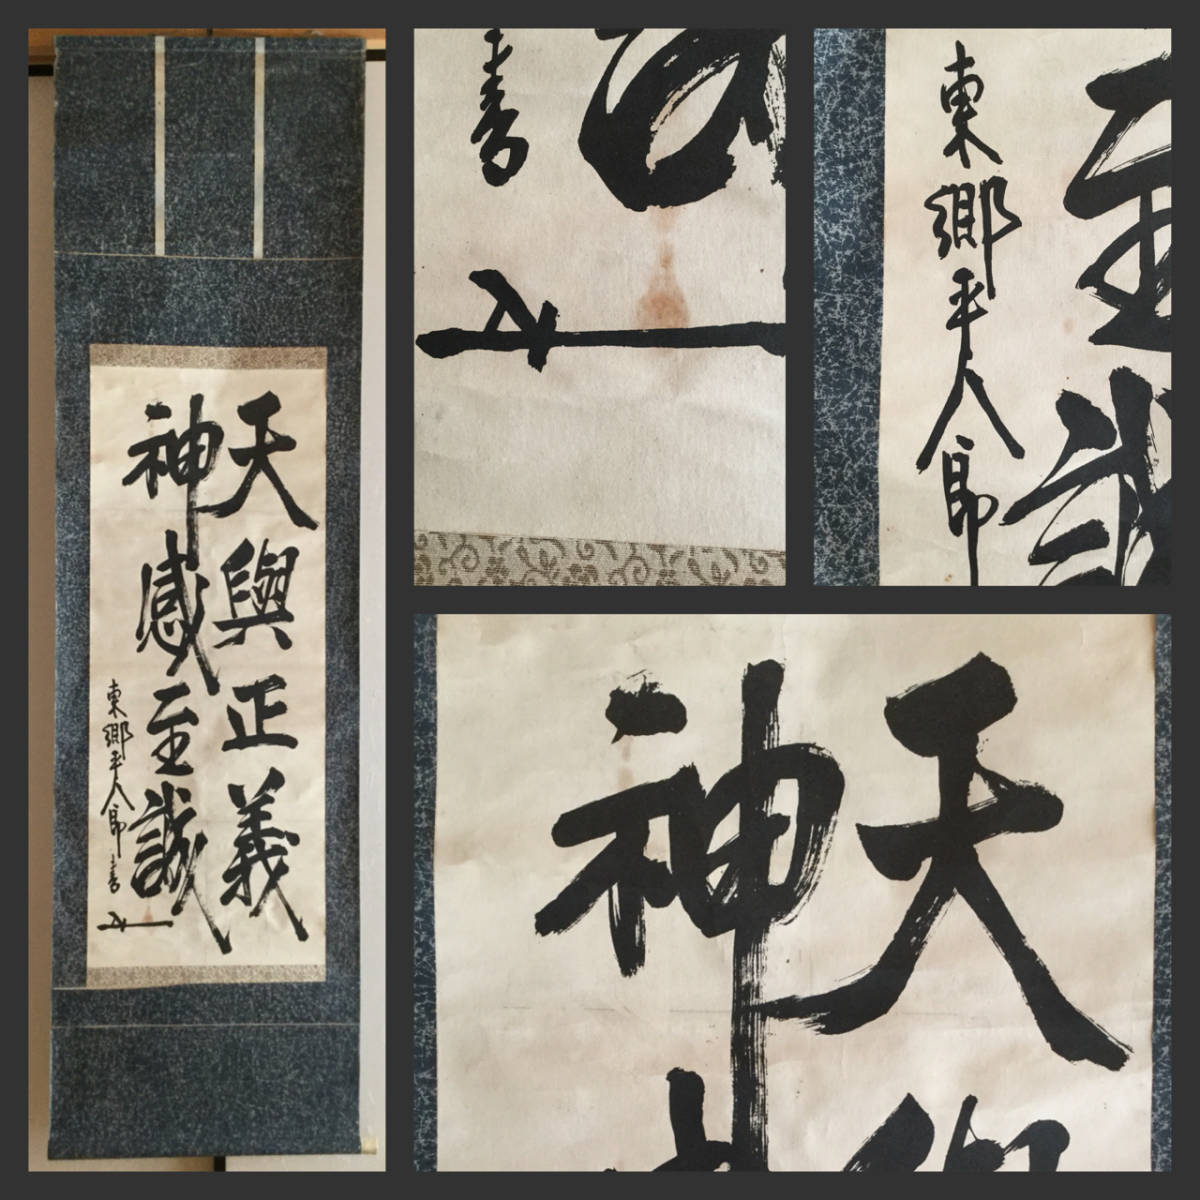 天與正義
神感至誠
東郷平八郎書
書
東郷平八郎
至誠
神天